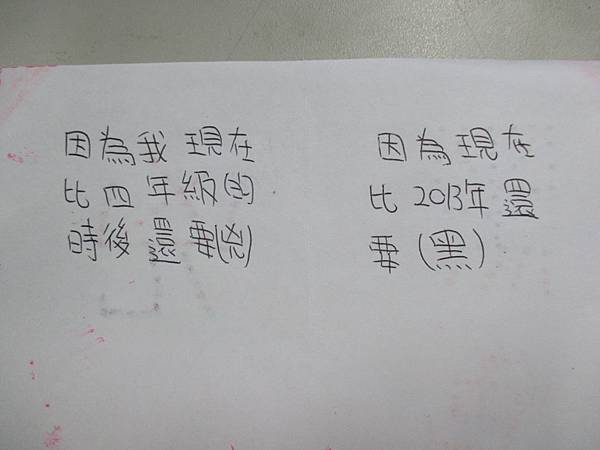 因為我 現在
比四年級的
時後還要(兇)
因為現在
比2013年還
要(黑)